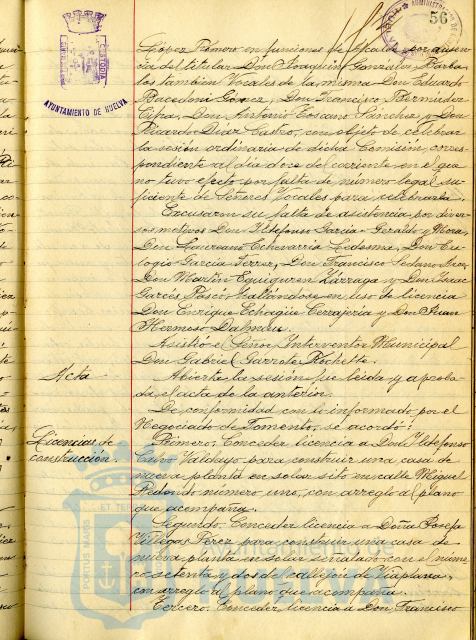 56
CUSTODIA
AYUNTAMIENTO DE HUELVA
López Romero en funciones de Alcalde por ausen-
cia del titular Don Joaquín González Barba
los tambien Vocales de la misma Don Eduardo
Gómez, Don Francisco Bermúdez
Don Antonio Toscano Sánchez y Don
Ricardo Díaz Castro, con objeto de celebrar
la sesión ordinaria de dicha Comisión corres-
pondiente al día doce del corriente en el que
no tuvo efecto por falta de número legal su-
ficiente de Señores Vocales para celebrarla.
Excusaron su falta de asistencia por diver-
sos motivos Don Ildefonso García-Gerardo y Mora,
Don Laureano Echevarría Ledesma, Don Eu-
logio García Don Francisco Sedano
Don Martín Eguiguren Lárraga y Don Isaac
Garcés hallándose en uso de licencia
Don Enrique Echagüe Cerrajería y Don Juan
Hermoso
Asistió el Señor Interventor Municipal
Don Gabriel Garrote
Acta
Abierta la sesión fue leida y aproba-
da, el acta de la anterior.
De conformidad con lo informado por el
Negociado de Fomento, se acordó:
Licencias de
construcción.
Primero: Conceder licencia a Don Ildefonso
Calvo para construir una casa de
nueva planta en solar sito en calle Miguel
Redondo número uno, con arreglo al plano
que acompaña.
Segundo: Conceder licencia a Doña Josefa
Villegas Pérez para construir una casa de
nueva planta en solar señalado con el núme-
ro setenta y dos del callejón de Viaplana,
con arreglo al plano que acompaña.
Tercero: Conceder licencia a Don Francisco
PORTUS MARIS
ET TERRAE
Ayuntamiento de